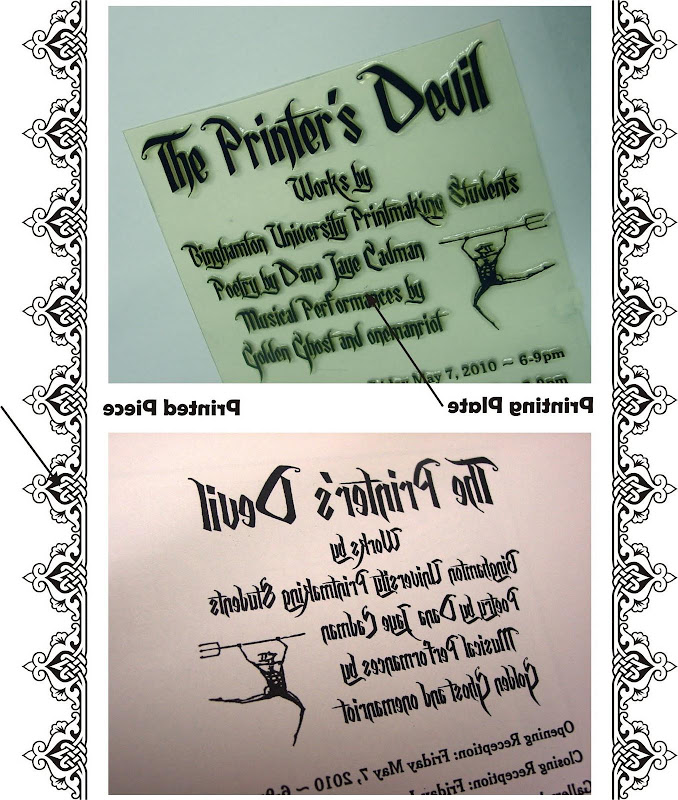 The Printer's Devil
Works by
Binghamton University Printmaking Students
Poetry by Dana Jaye Cadman
Musical Performances by
Golden Ghost and onemanriot
May 7, 2010 ~ 6-9pm
Printed Piece
Printing Plate
The Printer's Devil
Works by
Binghamton University Printmaking Students
Poetry by Dana Jaye Cadman
Musical Performances by
Golden Ghost and onemanriot
Opening Reception: Friday May 7, 2010 ~ 6-9
Closing Reception: Friday